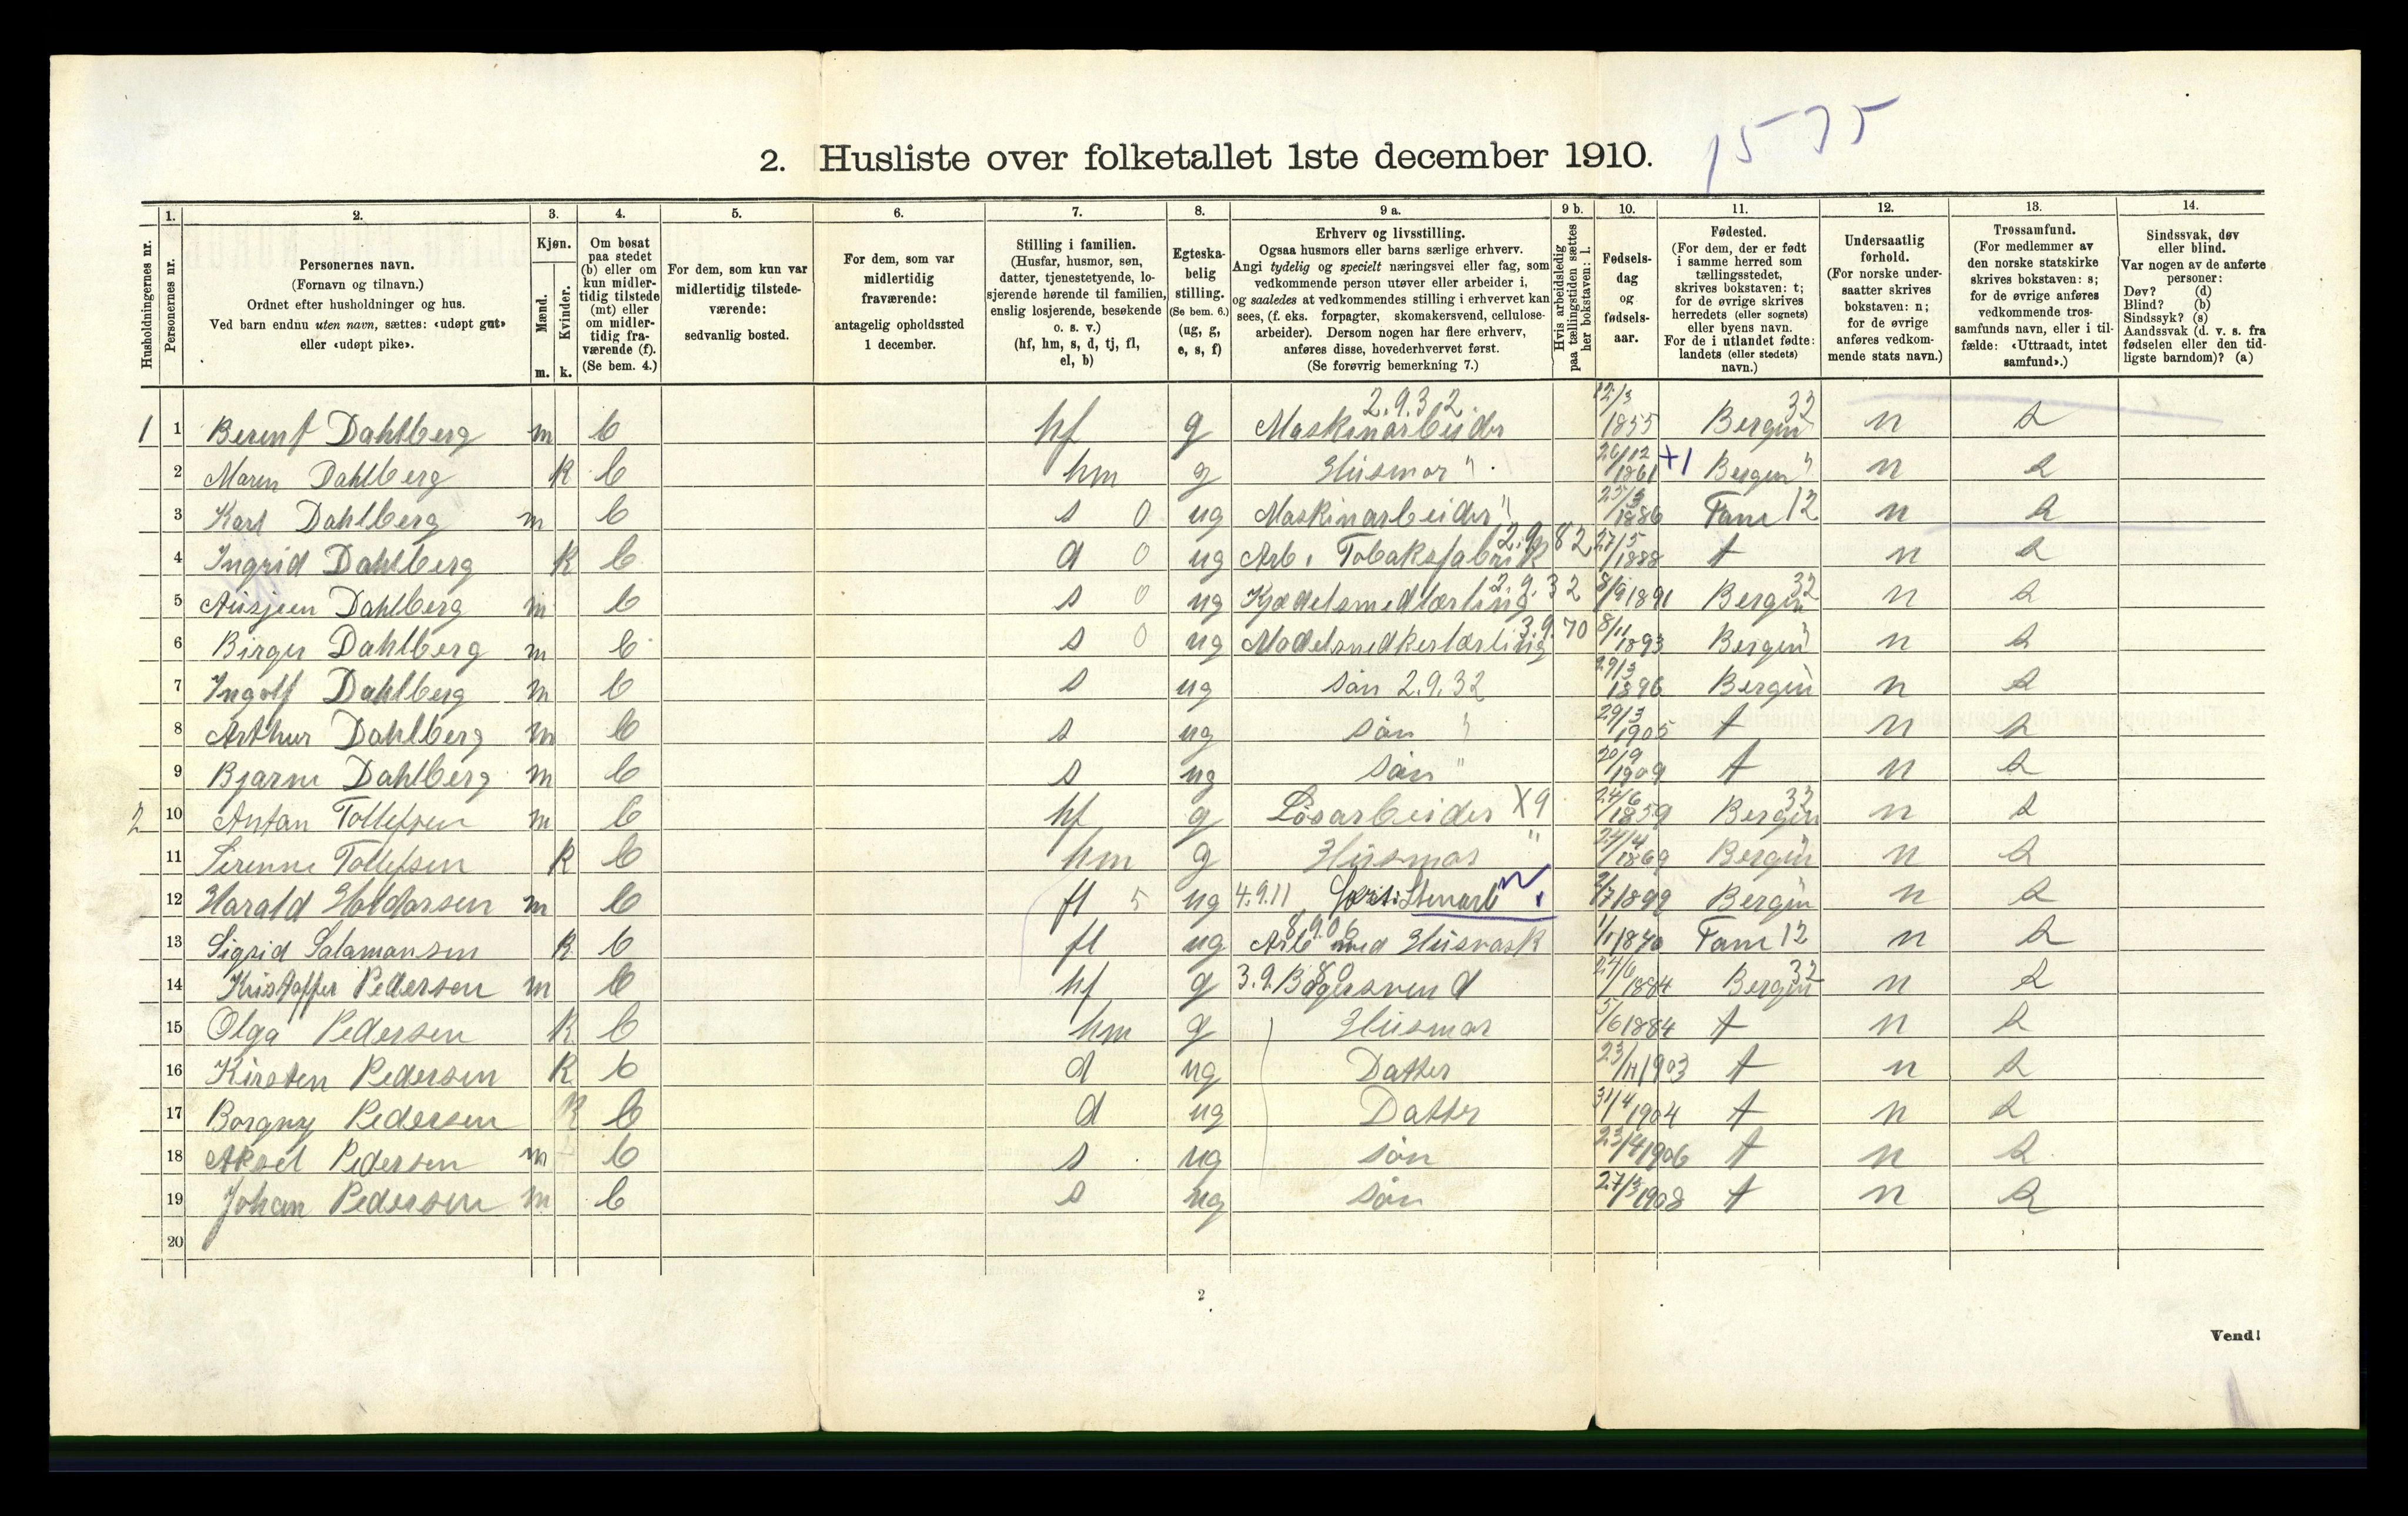 15 75
2. Husliste over folketallet 1ste december 1910.
Husholdningernes nr.
1. Personernes nr.
2. Personernes navn. (Fornavn og tilnavn.) Ordnet efter husholdninger og hus. Ved barn endnu uten navn, sættes: «udøpt gut» eller «udøpt pike».
3. Kjøn. Mænd. m. Kvinder. k.
4. Om bosat paa stedet (b) eller om kun midlertidig tilstede (mt) eller om midlertidig fraværende (f). (Se bem. 4.)
5. For dem, som kun var midlertidig tilstedeværende: sedvanlig bosted.
6. For dem, som var midlertidig fraværende: antagelig opholdssted 1 december.
7. Stilling i familien. (Husfar, husmor, søn, datter, tjenestetyende, losjerende hørende til familien, enslig losjerende, besøkende o. s. v.) (hf, hm, s, d, tj, fl, el, b)
8. Egteskabelig stilling. (Se bem. 6.) (ug, g, e, s, f)
9 a. Erhverv og livsstilling. Ogsaa husmors eller barns særlige erhverv. Angi tydelig og specielt næringsvei eller fag, som vedkommende person utøver eller arbeider i, og saaledes at vedkommendes stilling i erhvervet kan sees, (f. eks. forpagter, skomakersvend, cellulosearbeider). Dersom nogen har flere erhverv, anføres disse, hovederhvervet først. (Se forøvrig bemerkning 7.)
9 b. Hvis arbeidsledig paa tællingstiden sættes her bokstaven: l.
10. Fødselsdag og fødselsaar.
11. Fødested. (For dem, der er født i samme herred som tællingsstedet, skrives bokstaven: t; for de øvrige skrives herredets (eller sognets) eller byens navn. For de i utlandet fødte: landets (eller stedets) navn.)
12. Undersaatlig forhold. (For norske undersaatter skrives bokstaven: n; for de øvrige anføres vedkommende stats navn.)
13. Trossamfund. (For medlemmer av den norske statskirke skrives bokstaven: s; for de øvrige anføres vedkommende trossamfunds navn, eller i tilfælde: «Uttraadt, intet samfund».)
14. Sindssvak, døv eller blind. Var nogen av de anførte personer: Døv? (d) Blind? (b) Sindssyk? (s) Aandssvak (d. v. s. fra fødselen eller den tidligste barndom)? (a)
1 1 Berent Dahlberg m b hf g Maskinarbeider 2.9.32 12/3 1855 Bergen 32 n s
2 Maren Dahlberg k b hm g Husmor " 26/12 1861 +1 Bergen " n s
3 Karl Dahlberg m b s 0 ug Maskinarbeider " 1886 Fane 12 n s
4 Ingrid Dahlberg k b d 0 ug Arb. i Tobaksfabrik 2.9.82 27/5 1888 t n s
5 Dahlberg m b s 0 ug Kjedelsmedlærling 2.9.32 8/9 1891 Bergen 32 n s
6 Birger Dahlberg m b s 0 ug Modelsnedkerlærling 3.9.70 8/11 1893 Bergen " n s
7 Ingolf Dahlberg m b s ug søn 2.9.32 29/3 1896 Bergen " n s
8 Arthur Dahlberg m b s ug søn " 29/3 1905 t n s
9 Bjarne Dahlberg m b s ug søn " 20/9 1909 t n s
2 10 Anton Tollefsen m b hf g Løsarbeider X9 24/6 1859 Bergen 32 n s
11 Serenne Tollefsen k b hm g Husmor " 24/4 1869 Bergen " n s
12 Harald Haldorsen m b fl 5 ug 4.9.11 Stenarb 2/7 1899 Bergen " n s
13 Sigrid Salamonsen k b fl ug Arb med Husvask 8.9.06 1/1 1840 Fane 12 n s
14 Kristoffer Pedersen m b hf g Bagersvend 3.9.80 24/6 1884 Bergen 32 n s
15 Olga Pedersen k b hm g Husmor 5/6 1884 t n s
16 Kirsten Pedersen k b d ug Datter 23/11 1903 t n s
17 Borgny Pedersen k b d ug Datter 31/4 1904 t n s
18 Aksel Pedersen m b s ug søn 23/4 1906 t n s
19 Johan Pedersen m b s ug søn 27/3 1908 t n s
20
2
Vend!